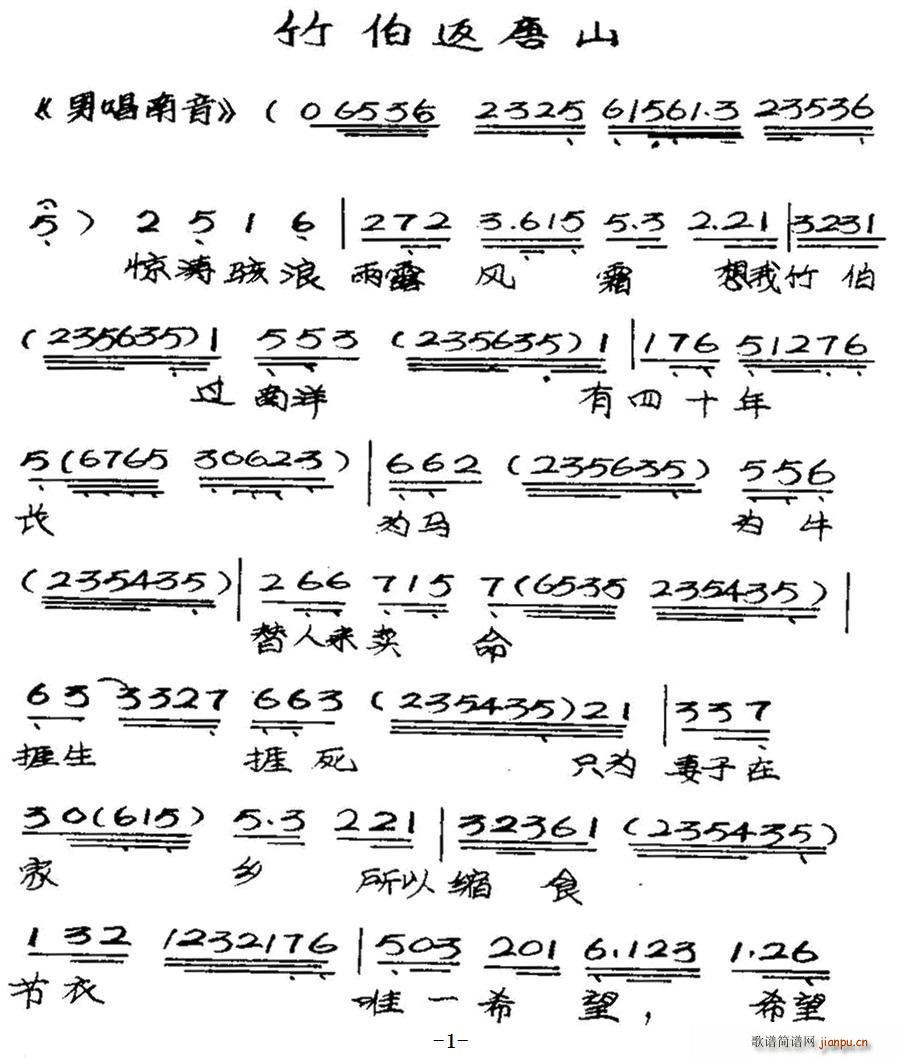 竹伯返唐山
《男唱南音》(0 6536 2325 61561.3 23536
5) 2 5 1 6 | 272 3.615 5.3 2.21 | 3231
惊涛骇浪 雨露 风 霜 想我竹伯
(235635)1 553 (235635)1 | 176 51276
过南洋 有四十年
5(6765 30623) | 662 (235635) 556
长 为马 为牛
(235435) | 266 715 7(6535 235435) |
替人来卖 命
63 3327 663 (235435)21 | 337
捱生 捱死 只为 妻子在
30(615) 5.3 221 | 32361 (235435)
家 乡 所以缩 食
132 1232176 | 503 201 6.123 1.26
节衣 唯一希 望, 希望
-1-
歌谱简谱网
jianpu.cn